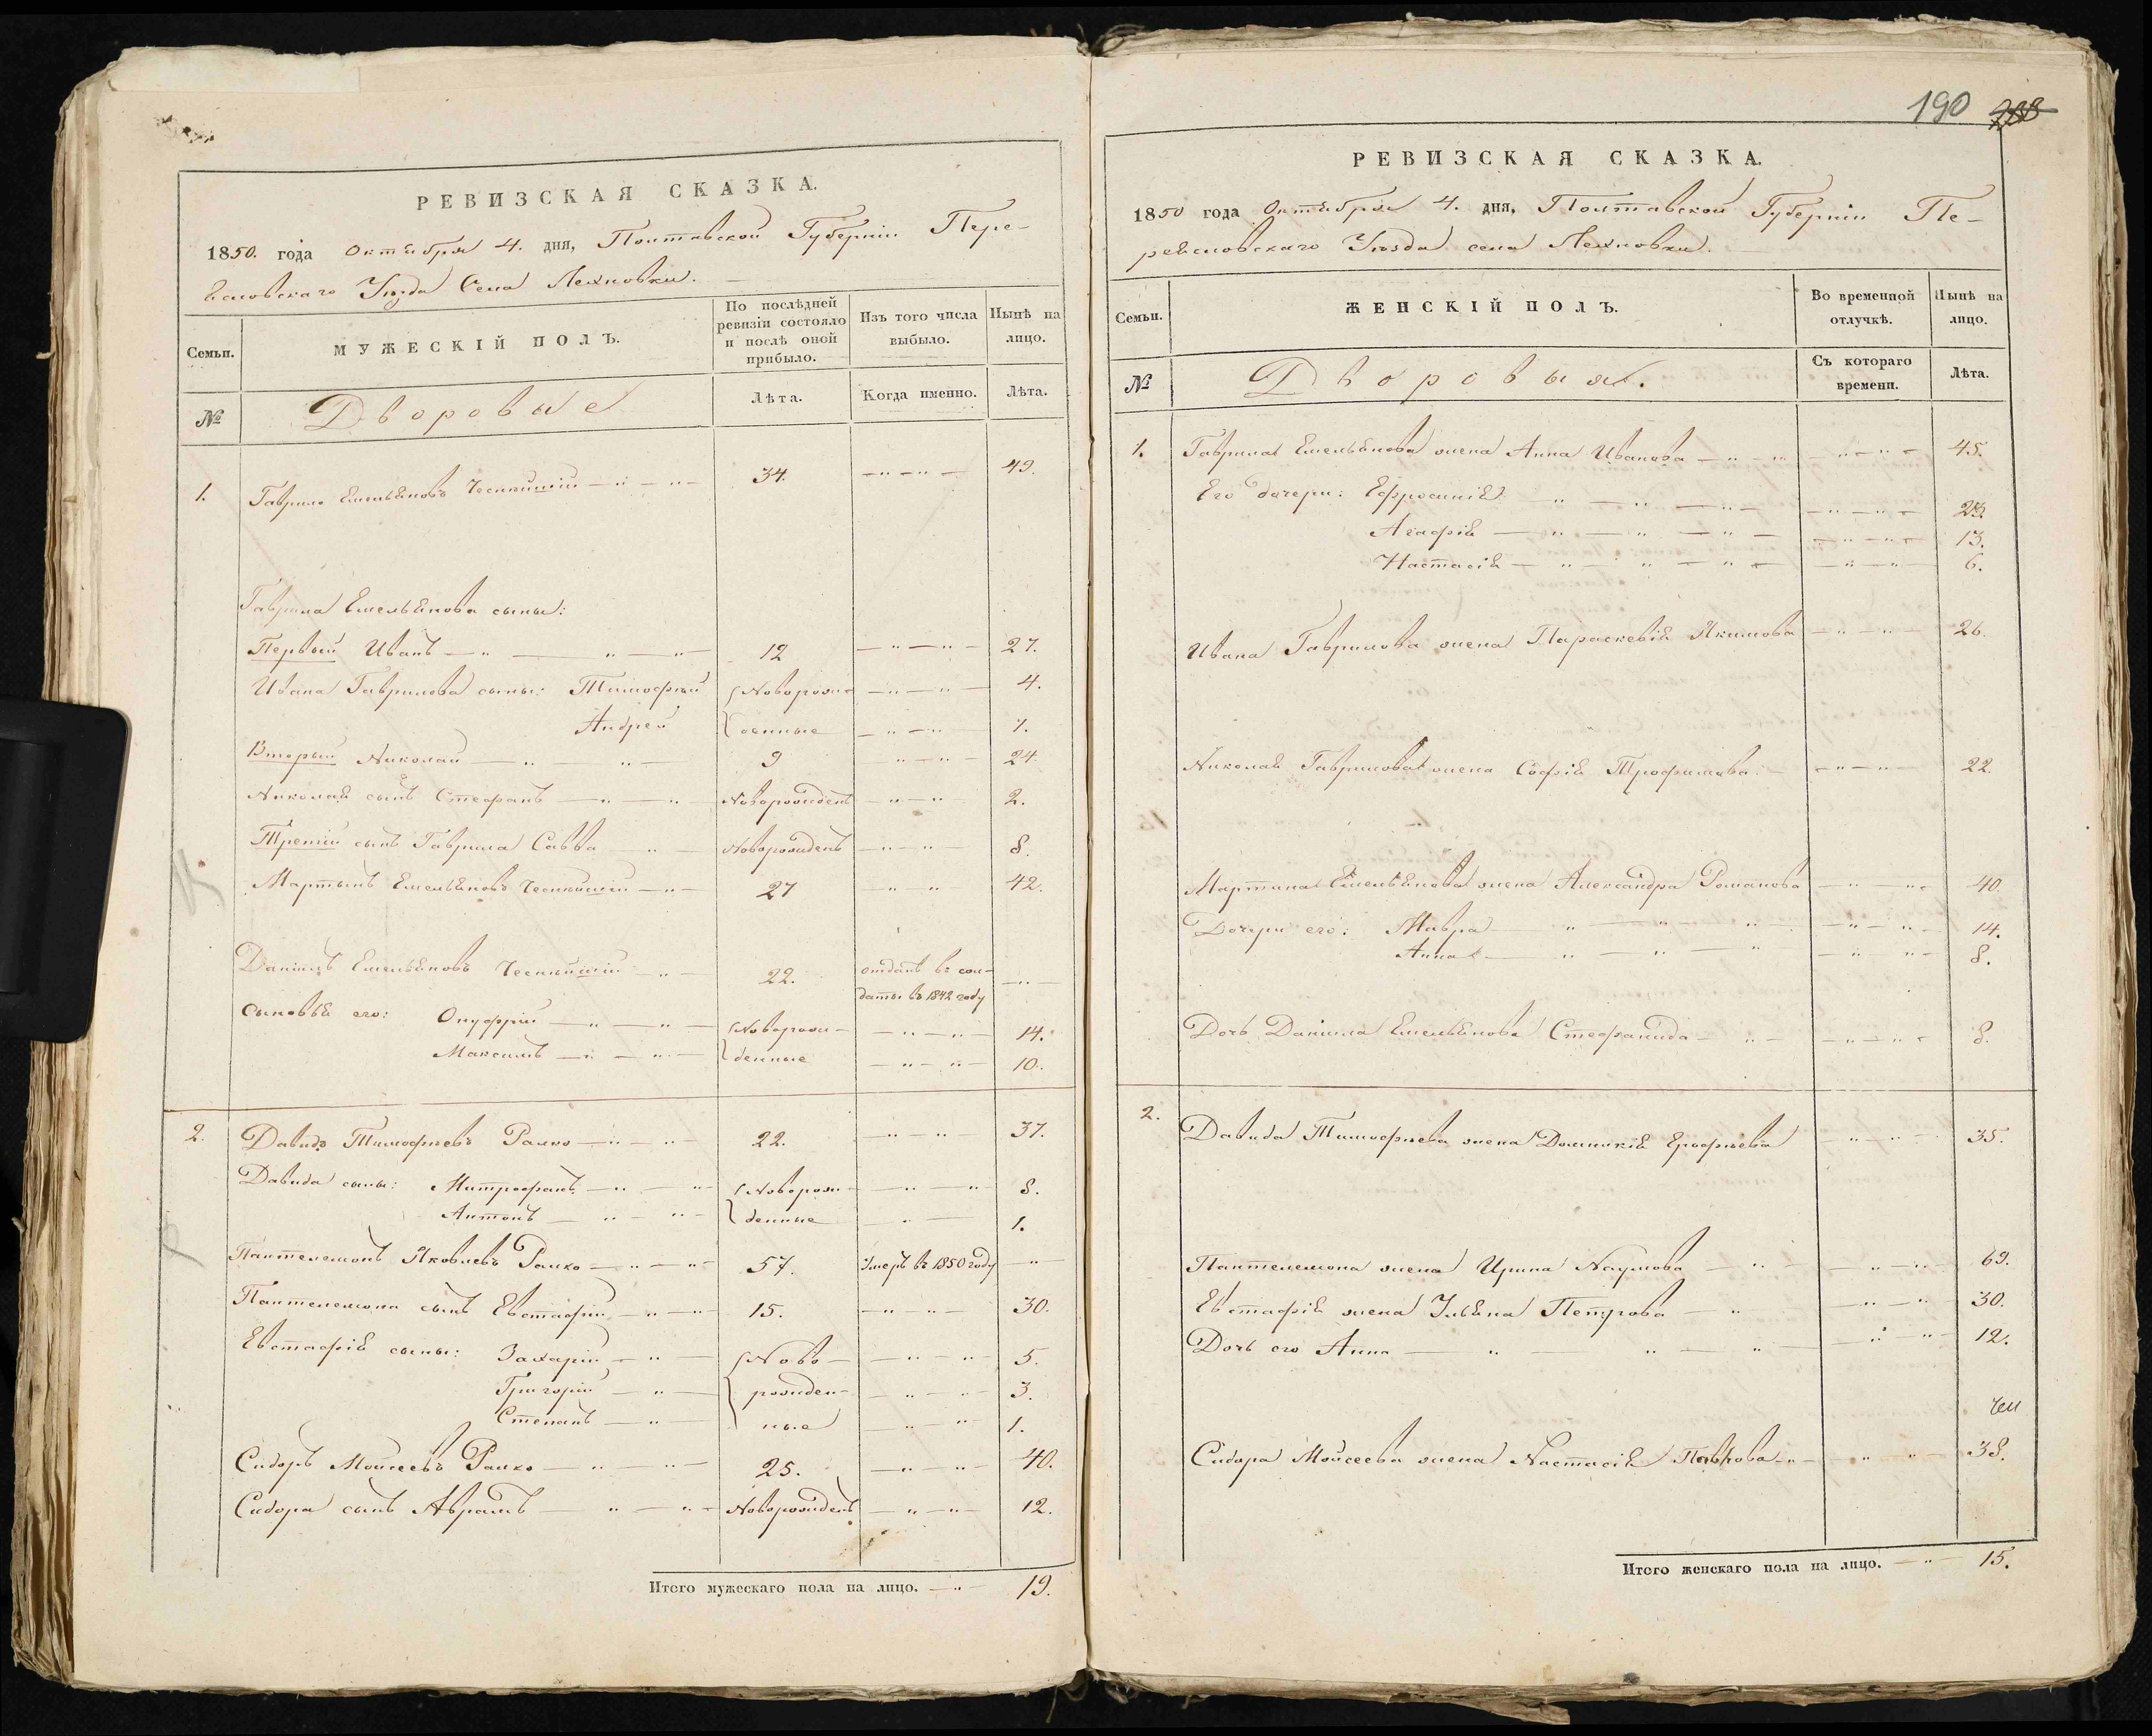 РЕВИЗСКАЯ СКАЗКА.
1850. года Октября 4. дня, Полтавской Губерніи Пере-
ясловскаго Уѣзда Села Лехновки.
Семьи.
МУЖЕСКІЙ ПОЛЪ.
По послѣдней ревизіи состояло и послѣ оной прибыло.
Изъ того числа выбыло.
Нынѣ на лицо.
№
Дворовые
Лѣта.
Когда именно.
Лѣта.
1. Гаврило Емельяновъ — " — " — 34. — " — " — 49.
Гаврила Емельянова сыны:
Первый Иванъ — " — " — " — 12 — " — " — 27.
Ивана Гаврилова сыны: Тимофѣй Новорож- — " — " — 4.
Андрей денные — " — " 1.
Вторый Николай — " — " — 9 " — " — 24.
Николая сынъ Стефанъ — " — " Новорожденъ — " — " 2.
Третій сынъ Гаврила Савва — " — Новорожденъ — " — " 8.
Мартынъ Емельяновъ — " — 27 " — " 42.
Даніилъ Емельяновъ — " — 22. отданъ въ сол-
даты въ 1842 году — " —
Сыновья его: Онуфрій — " — " — Новорож- — " — " — 14.
Максимъ — " — " — денные — " — " — 10.
2. Давидъ Тимофѣевъ Ралко — " — " — 22. — " — " 37.
Давида сыны: Митрофанъ — " — " Новорож- — " — " 8.
Антонъ — " — " — денные — " — 1.
Пантелемонъ Яковлевъ Ралко — " — " 57. Умеръ въ 1850 году — "
Пантелемона сынъ Евстафій — " — " 15. — " — " — 30.
Евстафія сыны: Захарій — " — Ново- — " — " 5.
Григорій — " — рожден- — " — " 3.
Степанъ — " — ные " — " 1.
Сидоръ Мойсеевъ Ралко — " — " — 25. " — " 40.
Сидора сынъ Аврамъ — " — " — Новорожденъ. — " — " 12.
Итого мужескаго пола на лицо. — " — 19.
190 788
РЕВИЗСКАЯ СКАЗКА.
1850 года Октября 4. дня, Полтавской Губерніи Пе-
реясловскаго Уѣзда села Лехновки.
Семьи.
ЖЕНСКІЙ ПОЛЪ.
Во временной отлучкѣ.
Нынѣ на лицо.
№
Дворовыя.
Съ котораго времени.
Лѣта.
1. Гаврила Емельянова жена Анна Иванова — " — " — " — " — 45.
Его дочери: Ефросинія — " — " — " — — " — " — 23.
Агафія — " — " — " — — " — " — 13.
Настасія — " — " — " — — " — " — 6.
Ивана Гаврилова жена Параскевія Якимова — " — " — 26.
Николая Гаврилова жена Софія Трофимова — " — " — 22.
Мартина Емельянова жена Александра Романова — " — " — 40.
Дочери его: Мавра — " — " — " — " — " — 14.
Анна — " — " — " — " — " — 8.
Дочь Даніила Емельянова Стефанида — " — — " — " — 8.
2. Давида Тимофѣева жена Домникія Ерофѣева " — " — 35.
Пантелемона жена Ирина Наумова — " — — " — " — 69.
Евстафія жена Ульяна Петрова — " — " — " — 30.
Дочь его Анна — " — " — " — " — " — 12.
Сидора Мойсеева жена Настасія Павлова — " — " — " — 38.
Итого женскаго пола на лицо. — " — 15.